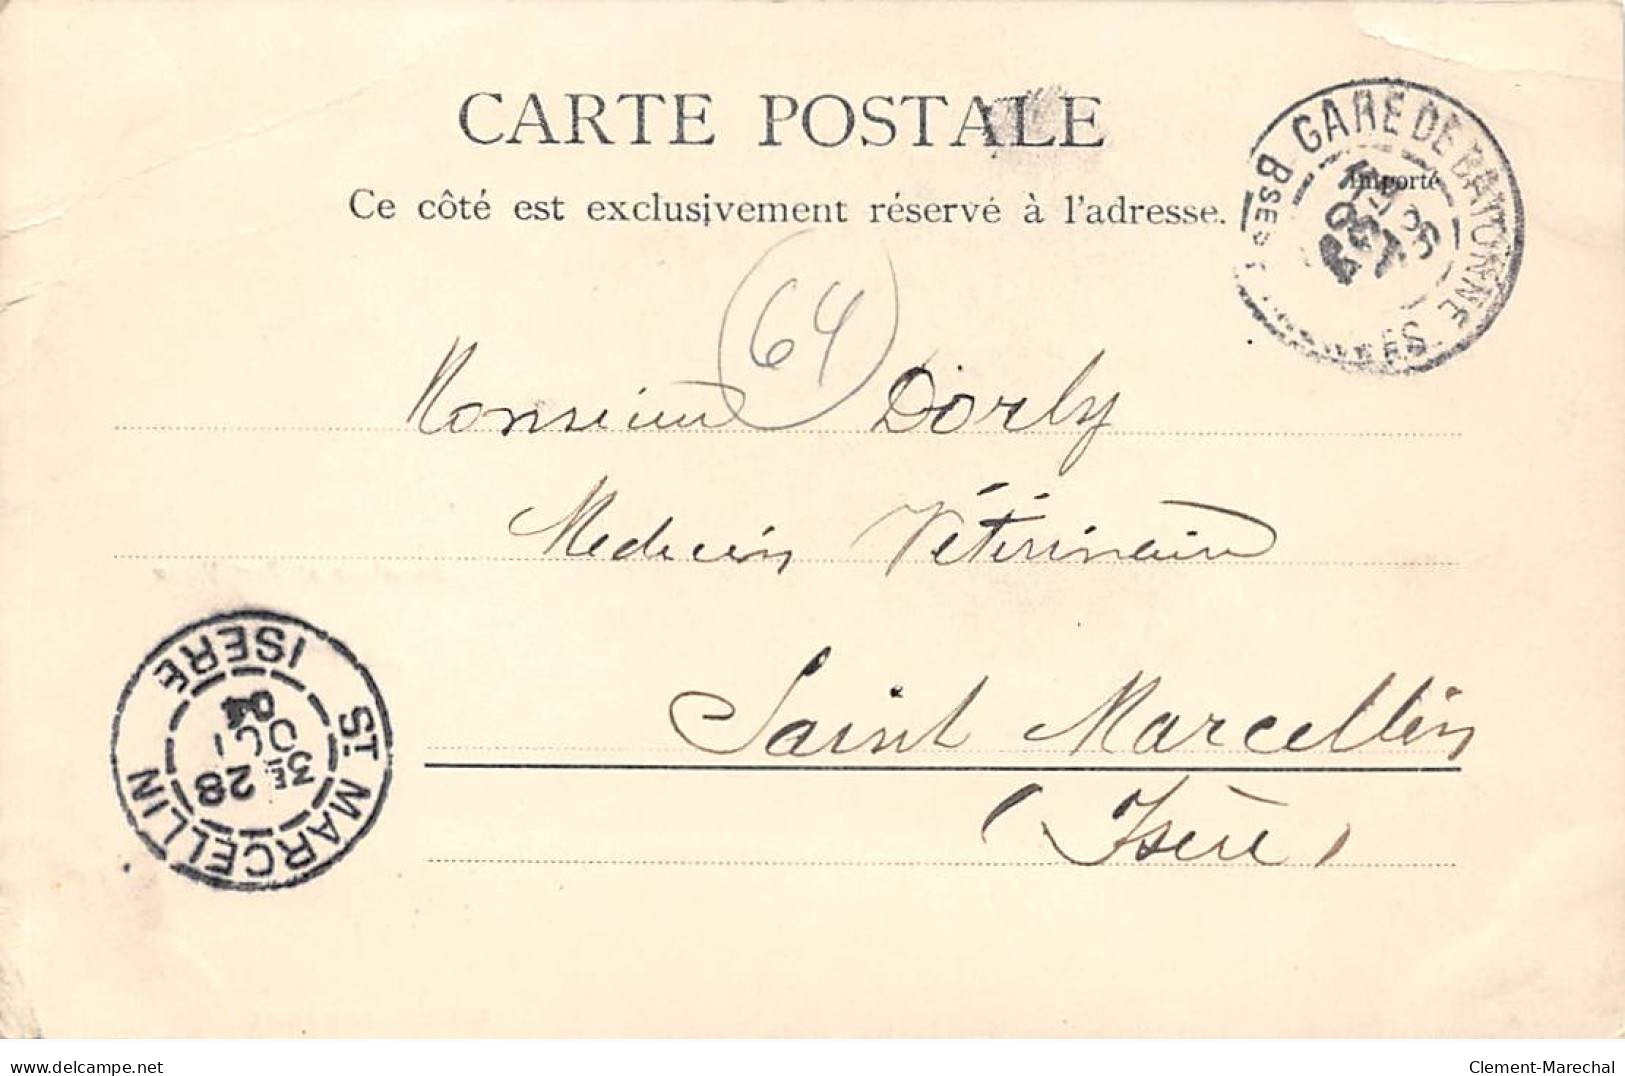 CARTE POSTALE
Ce côté est exclusivement réservé à l'adresse.
Importé
GARE DE BAYONNE
Bses
26
OCT
04
(64)
Monsieur Dorly
Medecin Vétérinaire
Saint Marcellin
(Isère)
ST MARCELLIN
ISERE
3E
28
OCT
04
delcampe.net
Clement-Marechal